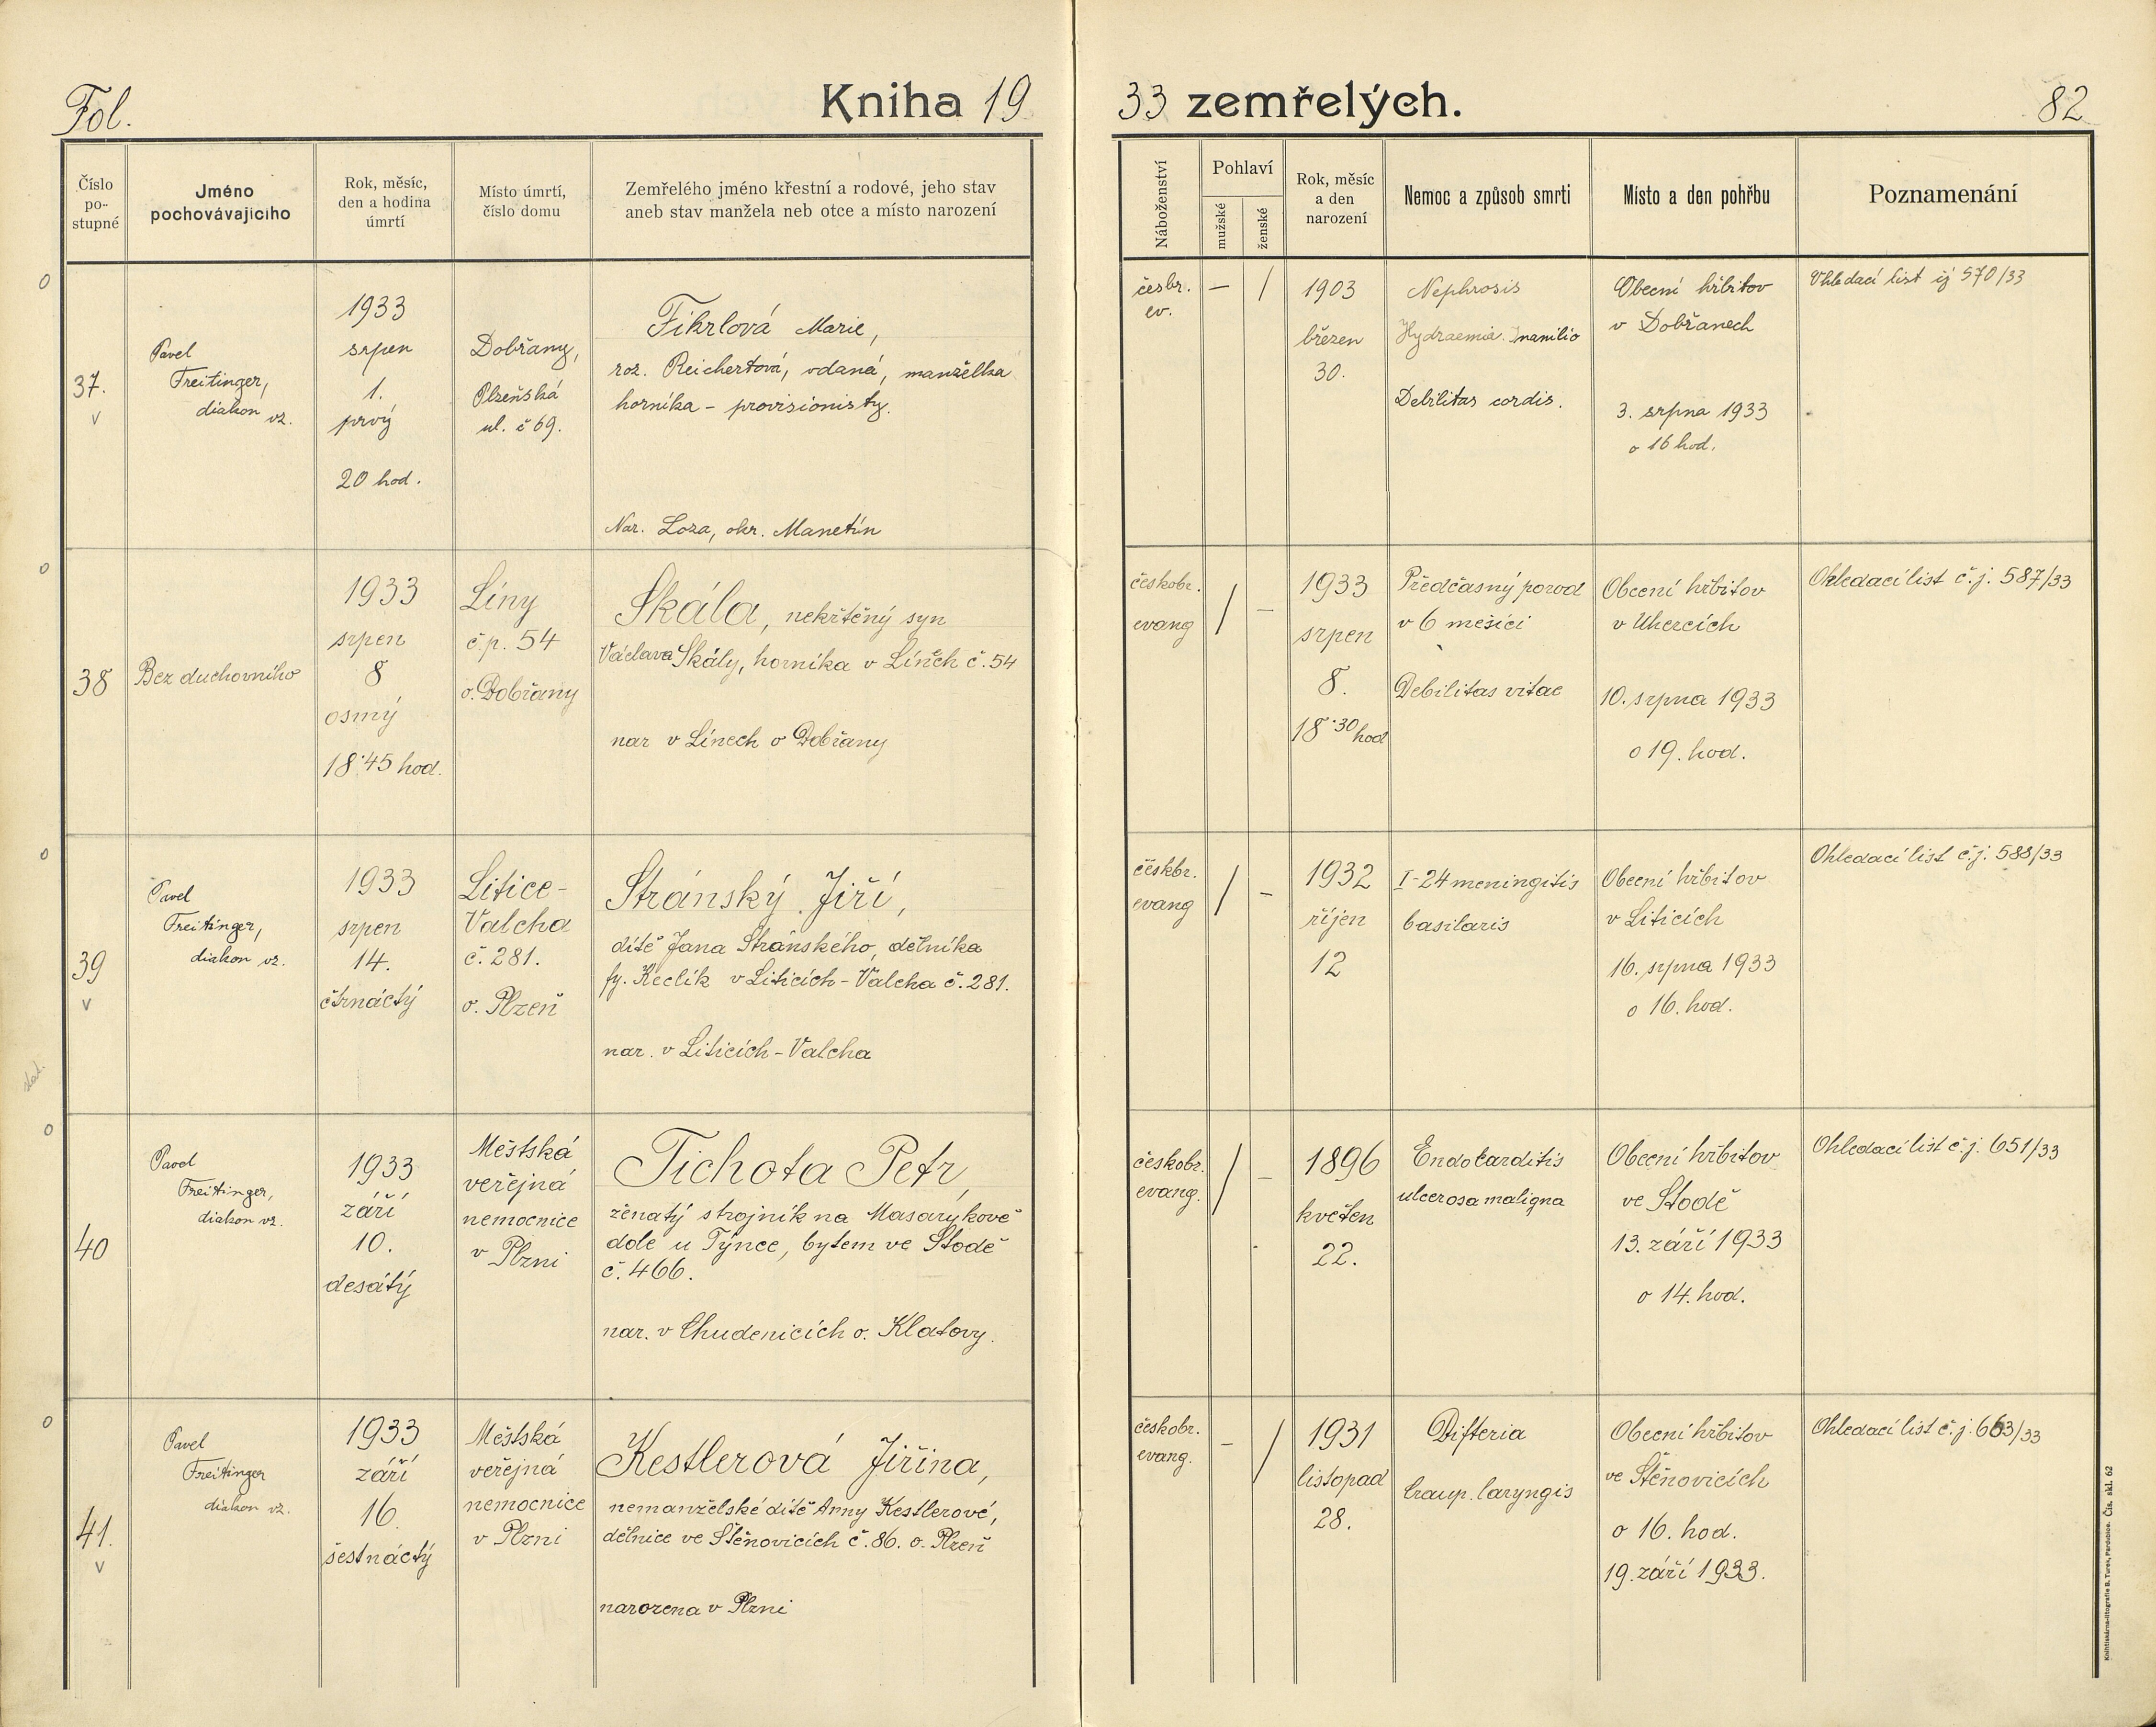 Fol.
Kniha 19
33 zemřelých.
82
Číslo
po-
stupné
Jméno
pochovávajícího
Rok, měsíc,
den a hodina
úmrtí
Místo úmrtí,
číslo domu
Zemřelého jméno křestní a rodové, jeho stav
aneb stav manžela neb otce a místo narození
Náboženství
Pohlaví
mužské
ženské
Rok, měsíc
a den
narození
Nemoc a způsob smrti
Místo a den pohřbu
Poznamenání
37.
v
Pavel
Freitinger,
diakon vz.
1933
srpen
1.
prvý
20 hod.
Dobřany,
Plzeňská
ul. č 69.
Fikrlová Marie,
roz. Reichertová, vdaná, manželka
horníka - provisionisty.
Nar. Loza, okr. Manetín
česbr.
ev.
—
/
1903
březen
30.
Nephrosis
Hydraemia.
Debilitas cordis.
Obecní hřbitov
v Dobřanech
3. srpna 1933
o 16 hod.
list čj 570/33
38
Bez duchovního
1933
srpen
8
osmý
18·45 hod.
Líny
čp. 54
o. Dobřany
Skála, nekřtěný syn
Václava Skály, horníka v Línech č. 54
nar v Línech o Dobřany
českobr.
evang
/
—
1933
srpen
8.
18·30 hod
Předčasný porod
v 6 měsíci
Debilitas vitae
Obecní hřbitov
v Uhercích
10. srpna 1933
o 19. hod.
Ohledací list č.j. 587/33
39
v
Pavel
Freitinger,
diakon vz.
1933
srpen
14.
čtrnáctý
Litice-
Valcha
č. 281.
o. Plzeň
Stránský Jiří,
dítě Jana Stránského, dělníka
fy. Keclík v Liticích - Valcha č. 281.
nar. v Liticích - Valcha
češkbr.
evang
/
—
1932
říjen
12
I-24 meningitis
basilaris
Obecní hřbitov
v Liticích
16. srpna 1933
o 16. hod.
Ohledací list č.j. 588/33
40
Pavel
Freitinger,
diakon vz.
1933
září
10.
desátý
Městská
veřejná
nemocnice
v Plzni
Tichota Petr,
ženatý strojník na Masarykově
dole u Týnce, bytem ve Stodě
č. 466.
nar. v Chudenicích o. Klatovy.
českobr.
evang.
/
—
1896
květen
22.
Endocarditis
ulcerosa maligna
Obecní hřbitov
ve Stodě
13. září 1933
o 14. hod.
Ohledací list č.j. 651/33
41.
v
Pavel
Freitinger
diakon vz.
1933
září
16.
šestnáctý
Městská
veřejná
nemocnice
v Plzni
Kestlerová Jiřina,
nemanželské dítě Anny Kestlerové,
dělnice ve Štěnovicích č. 86. o. Plzeň
narozena v Plzni
českobr.
evang.
—
/
1931
listopad
28.
Difteria
Croup. laryngis
Obecní hřbitov
ve Štěnovicích
o 16. hod.
19. září 1933.
Ohledací list č.j. 663/33
Knihtiskárna-litografie B. Turek, Pardubice. Čís. skl. 62